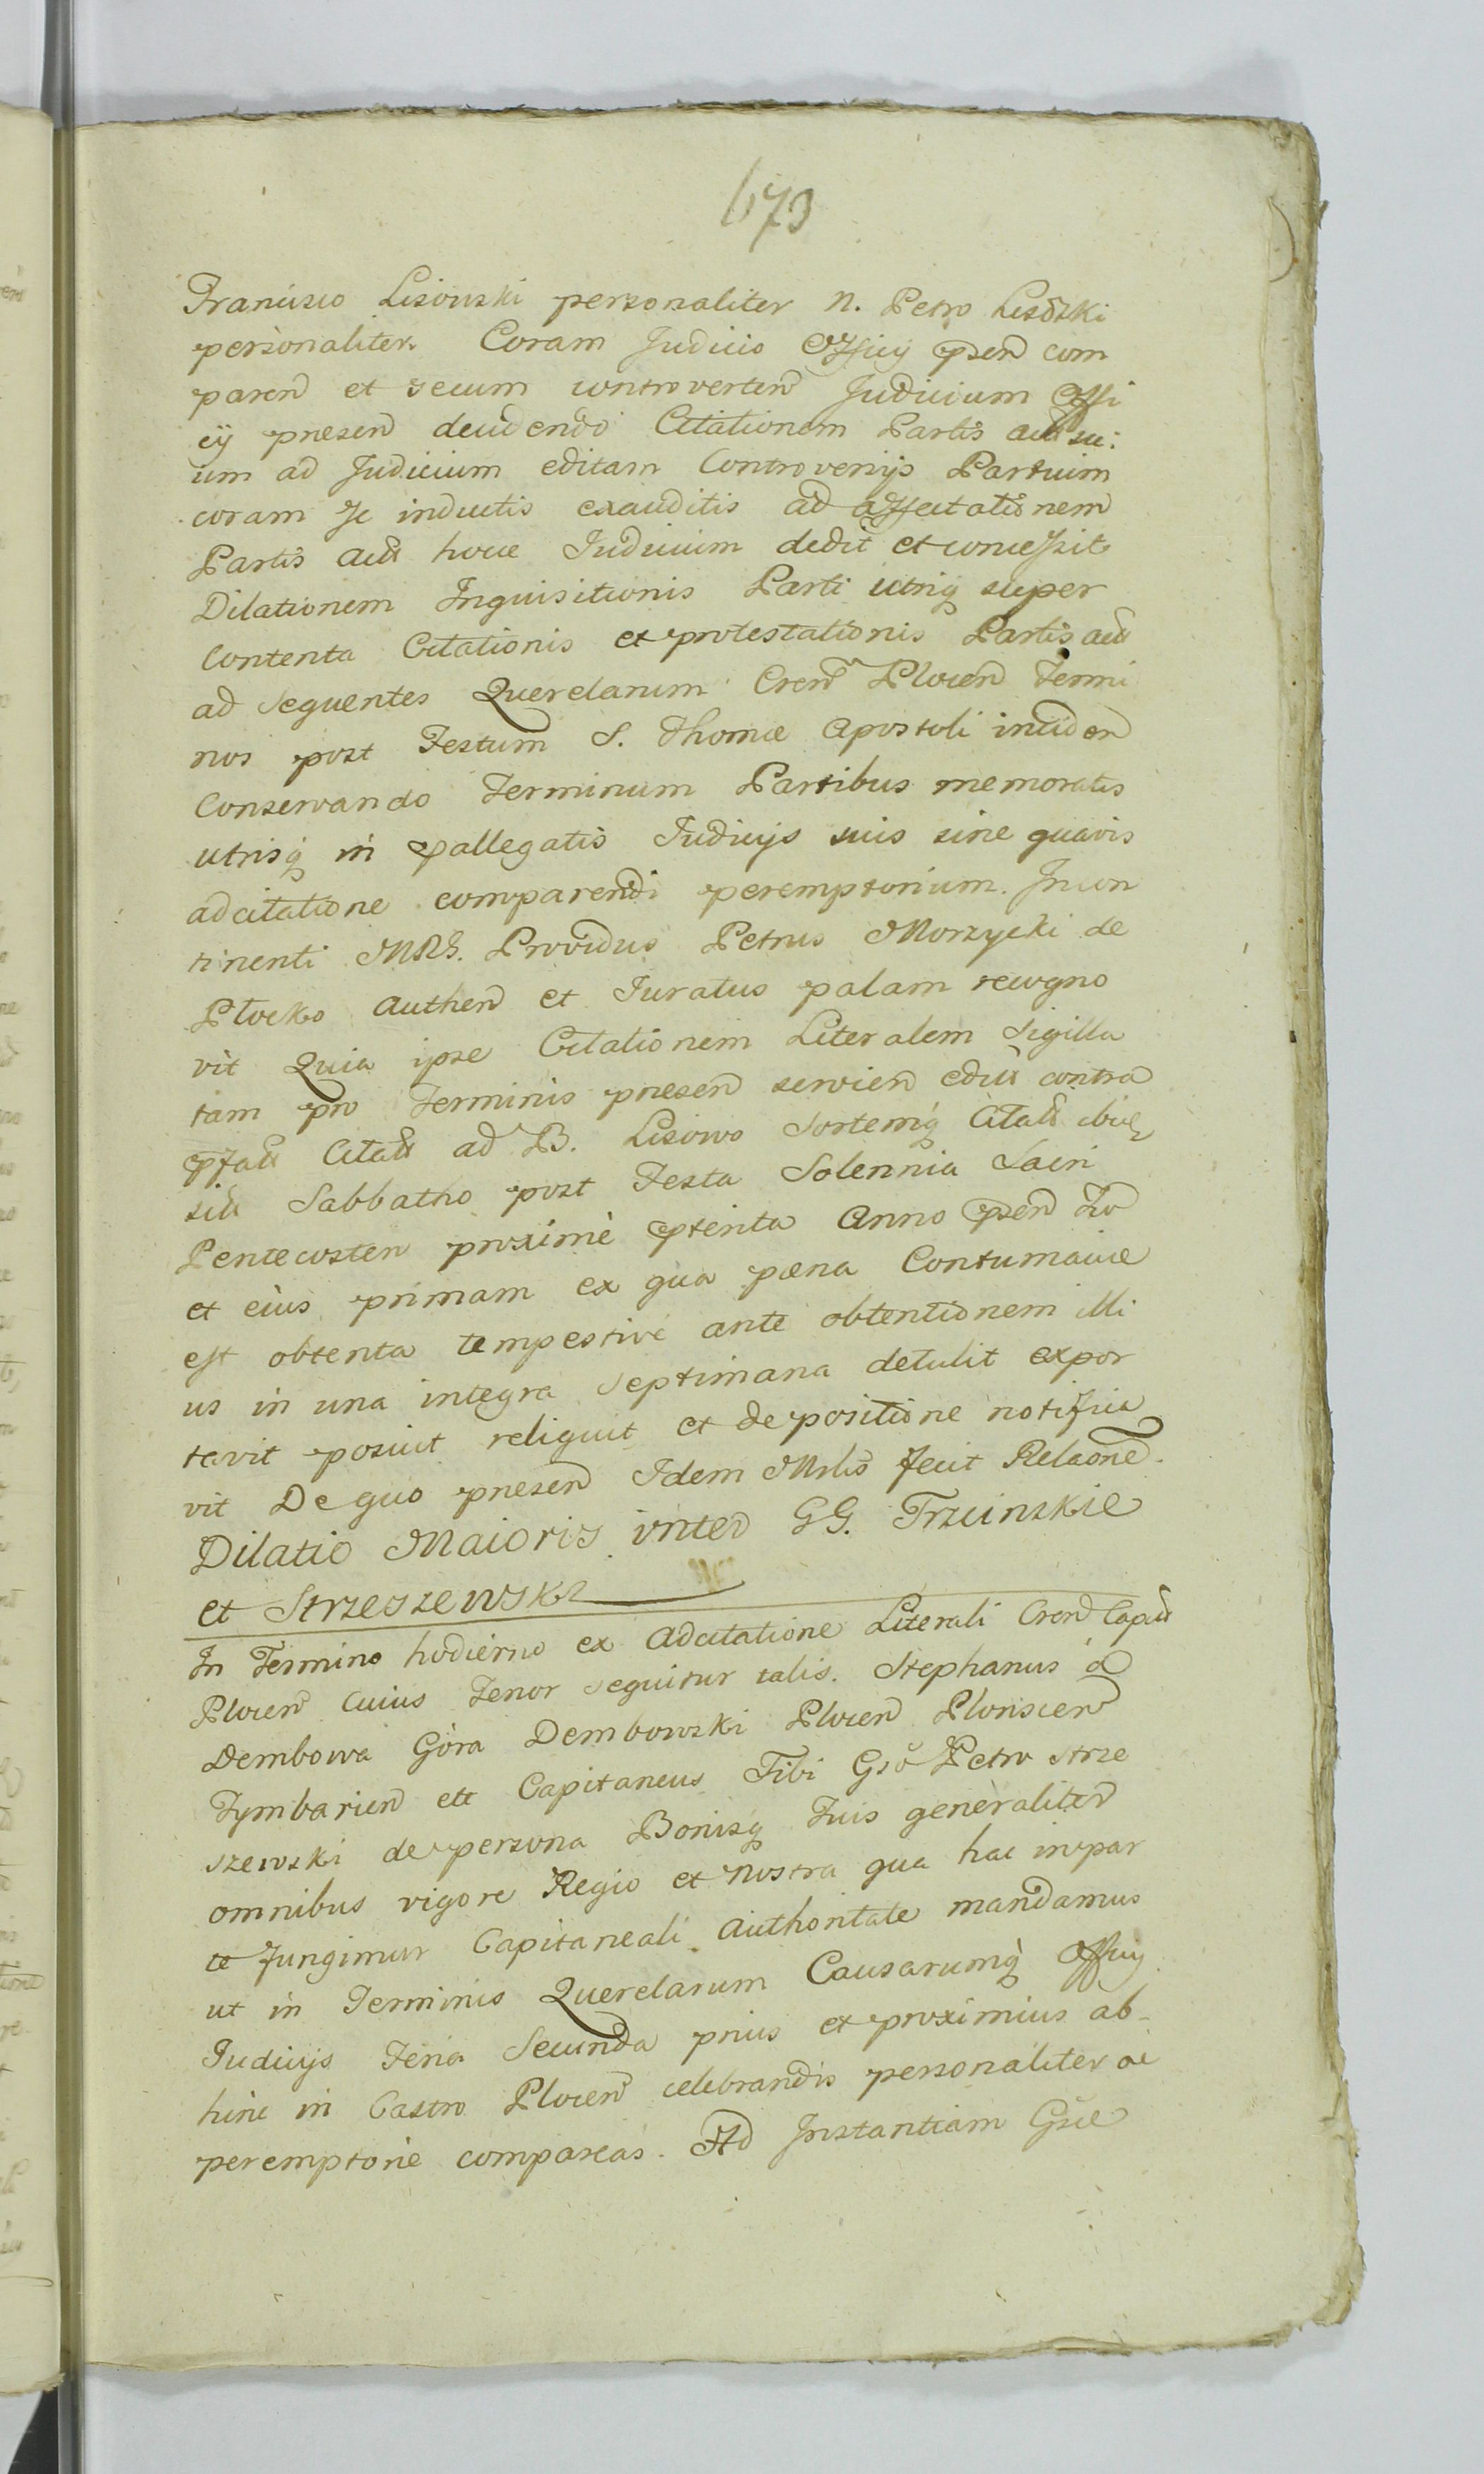 673
Francisco Lisowski personaliter n. Petro Lisowski
personaliter. Coram Judicio Officij psen com
paren et secum controverten Judicium Offi
cij presen decidendo Citationem Partis
um ad Judicium editam Controversijs Partium
coram se inductis exauditis ad affectationem
Partis act hocce Judicium dedit et concessit
Dilationem Inquisitionis Parti utriq super
Contenta Citationis et protestationis Partis act
ad sequentes Querelarum Cren Plocen Termi
nos post Festum S. Thomæ Apostoli inciden
Conservando Terminum Partibus memoratis
utrisq in pallegatis Judicijs suis sine quavis
adcitatione comparendi peremptorium. Incon
tinenti MRS. Providus Petrus Morzycki de
Plocko Authen et Juratus palam recogno
vit Quia ipse Citationem Literalem Sigilla
tam pro Terminis presen servien edit contra
pfatt Citatt ad B. Lisowo Sortemq Citatt ibiq
sitt Sabbatho post Festa Solennia Sacri
Pentecosten proximè pterita Anno psen
et eius primam ex qua pœna Contumaciæ
est obtenta tempestivè ante obtentionem illi
us in una integra septimana detulit expor
tavit posuit reliquit et de positione notifica
vit De quo presen Idem Mrlis fecit Relaone.
Dilatio Maioris inter GG. Trzcinskie
et Strzeszewski
In Termino hodierno ex Adcitatione Literali Cren Capitt
Plocen Cuius Tenor sequitur talis. Stephanus à
Dembowa Góra Dembowski Plocen Plonscen
Tymbarien ett Capitaneus Tibi Gso Petro Strze
szewski de persona Bonisq Tuis generaliter
omnibus vigore Regio et nostra qua hac in par
te fungimur Capitaneali Authoritate mandamus
ut in Terminis Querelarum Causarumq Officij
Judicijs Feria Secunda prius et proximius ab-
hinc in Castro Plocen celebrandis personaliter ac
peremptoriè compareas. Ad Instantiam Gsæ